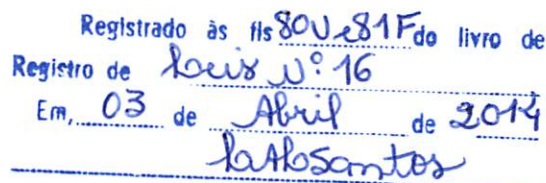 Registrado às fls 80V e 81F do livro de
Registro de Leis Nº 16
Em, 03 de Abril de 2014